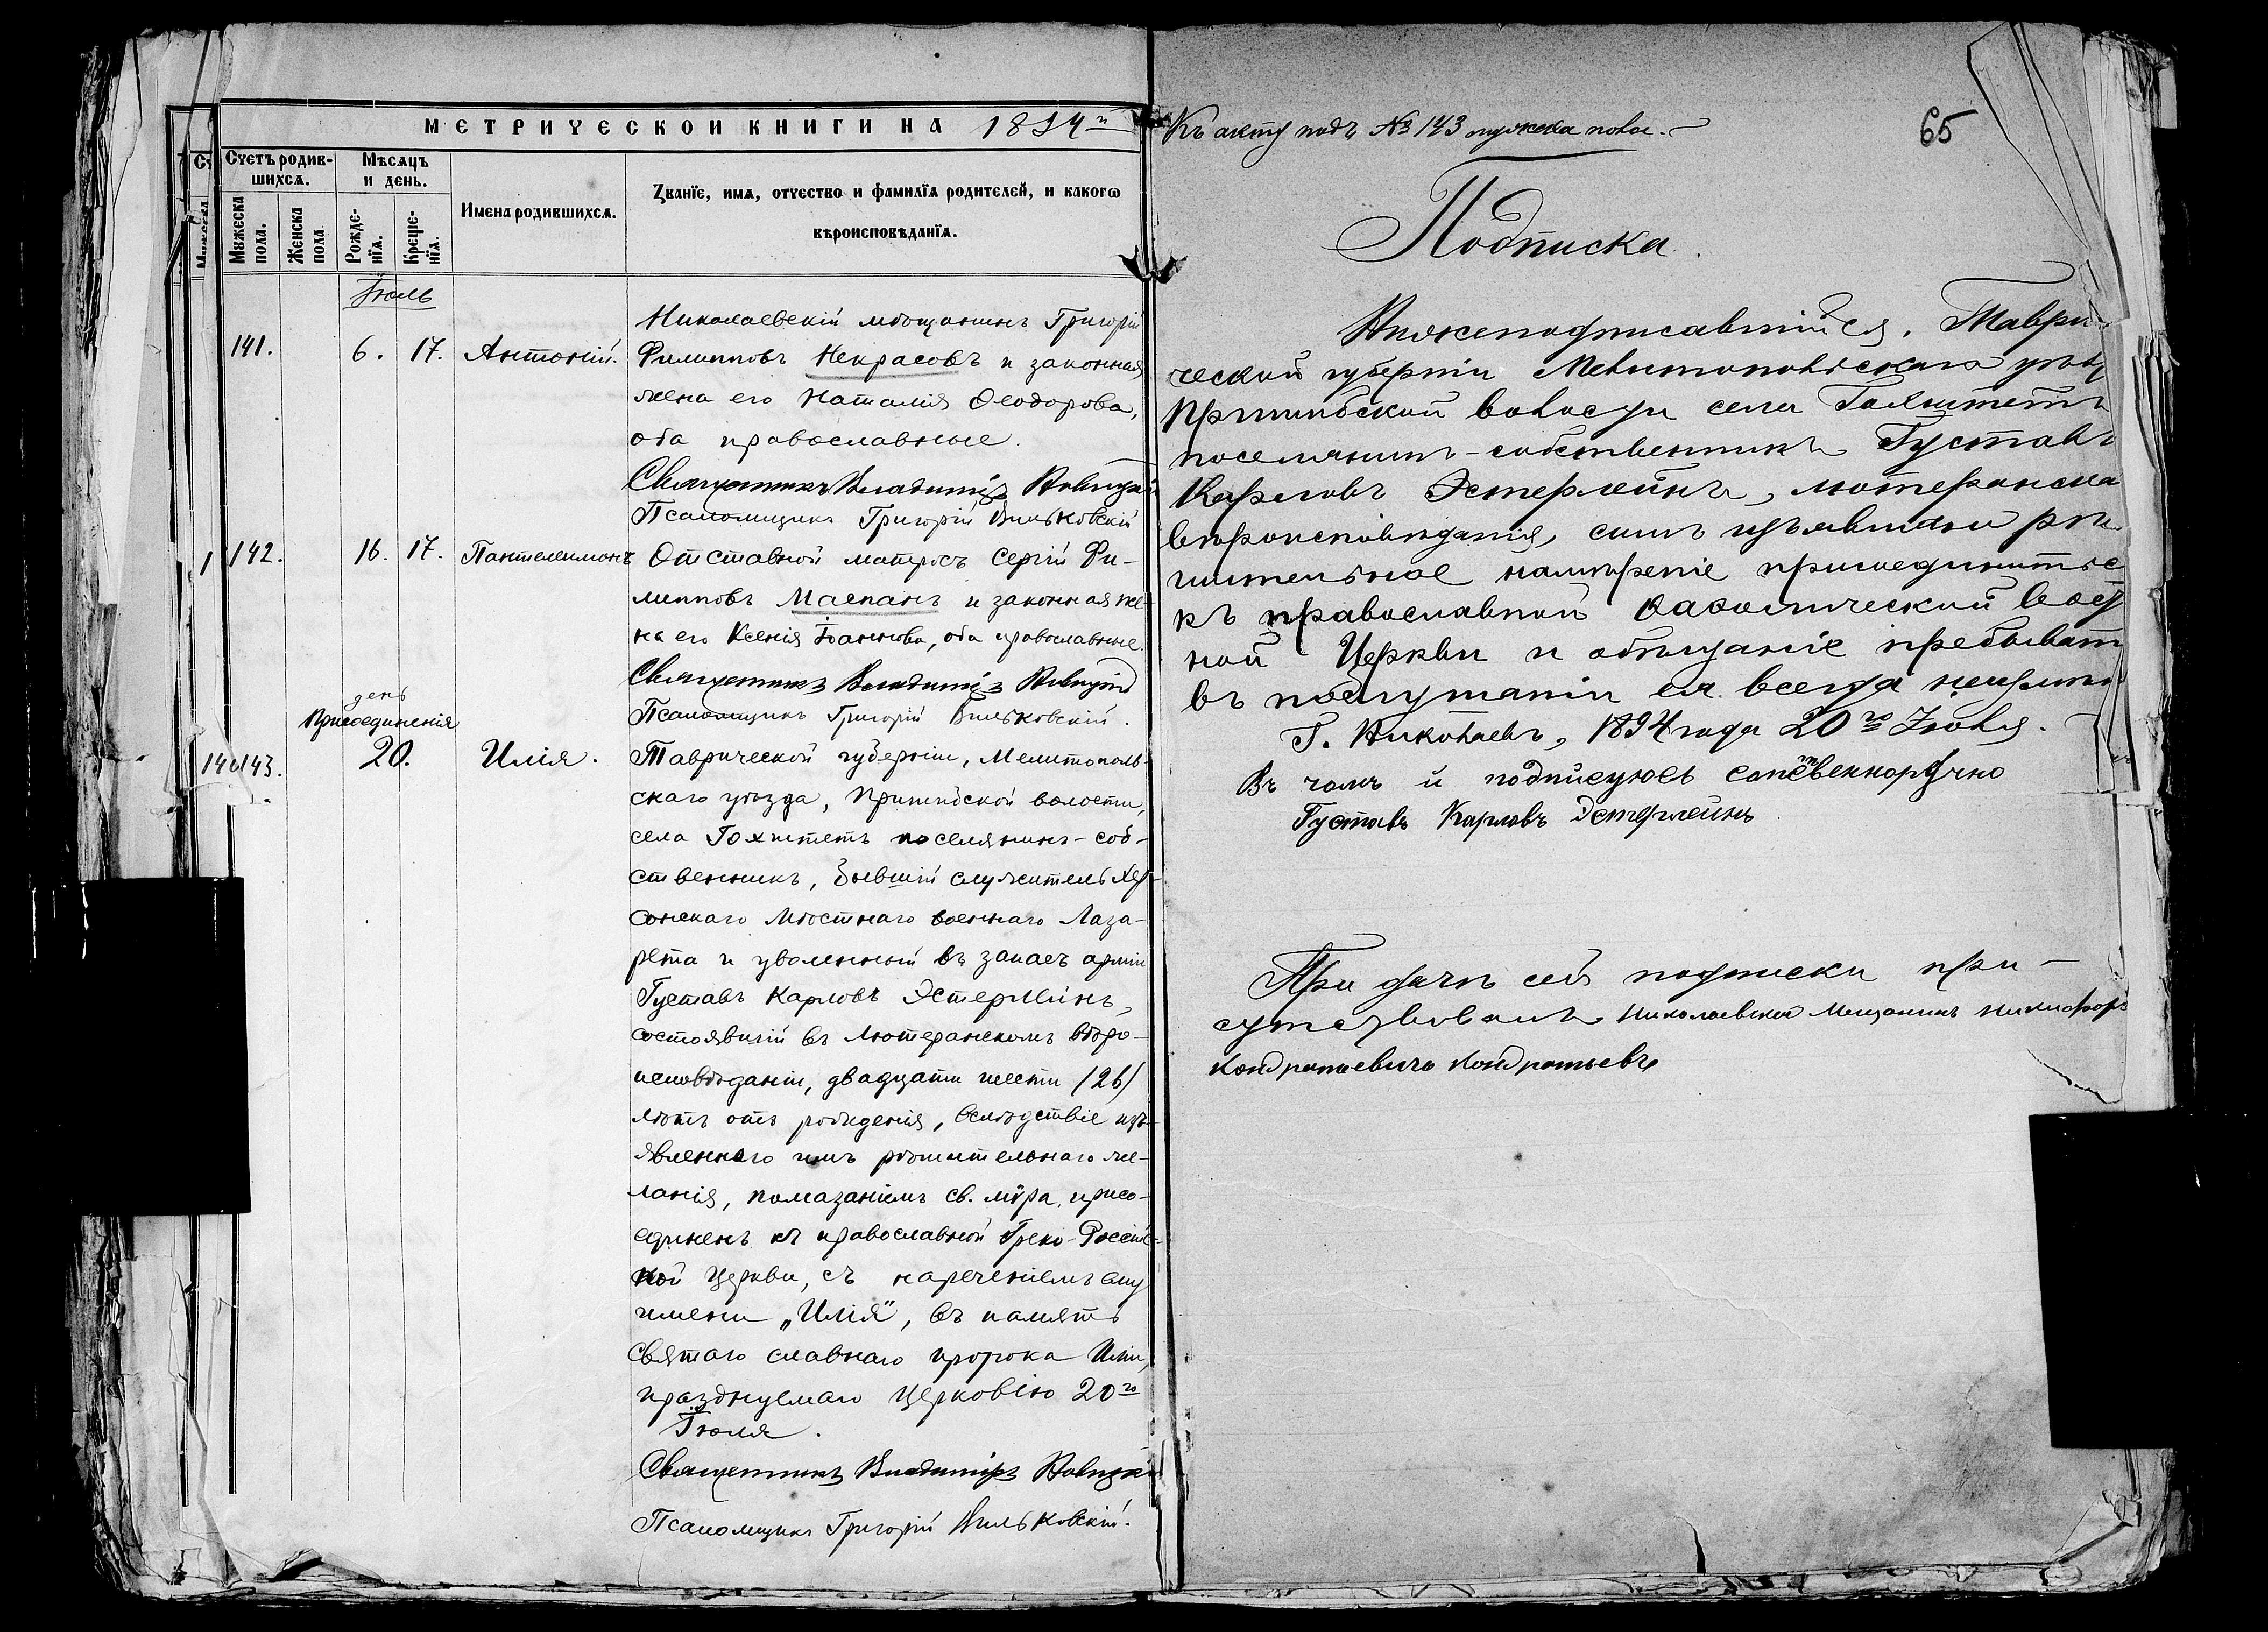 МЕТРИЧЕСКОЙ КНИГИ НА 1894й
Счетъ родив-
шихся.
Мужеска
пола.
Женска
пола
Мѣсяцъ
и день.
Рожде-
нія.
Креще-
нія.
Имена родившихся.
Званіе, имя, отчество и фамилія родителей, и какогѡ
вѣроисповѣданія.
Іюль
141. 6. 17. Антоній.
Николаевскій мѣщанинъ Григорій
Филипповъ Некрасовъ и законная
жена его Наталія Ѳеодорова,
оба православные.
Священникъ Владиміръ Новицкій
Псаломщикъ Григорій Вильковскій
142. 16. 17. Пантелеимонъ
Отставной матросъ Сергій Фи-
липповъ Маспанъ и законная же-
на его Ксенія Іоаннова, оба православные.
Священникъ Владиміръ Новицкій
Псаломщикъ Григорій Вильковскій.
день
присоединенія
143. 20. Илія.
Таврической губерніи, Мелитополь-
скаго уѣзда, Пришибской волости,
села Гохштетъ поселянинъ-соб-
ственникъ, бывшій служитель Хер-
сонскаго Мѣстнаго военнаго Лаза-
рета и уволенный въ запасъ арміи
Густавъ Карловъ Эстерлейнъ,
состоявшій въ Лютеранскомъ вѣро-
исповѣданіи, двадцати шести (26)
лѣтъ отъ рожденія, вслѣдствіе изъ-
явленнаго имъ рѣшительнаго же-
ланія, помазаніемъ св. мѵра, присо-
единенъ къ православной Греко-Россійс-
кой Церкви, съ нареченіемъ ему
имени „Илія", въ память
Святаго славнаго пророка Иліи,
празднуемаго Церковію 20го
Іюля.
Священникъ Владиміръ Новицкій
Псаломщикъ Григорій Вильковскій.
Къ акту подъ № 143 мужеска пола.
65
Подписка.
Нижеподписавшійся, Таври-
ческой губерніи Мелитопольскаго уѣз
Пришибской волости села Гохштетъ
поселянинъ-собственникъ Густавъ
Карловъ Эстерлейнъ, лютеранска
вѣроисповѣданія, симъ изъявляю рѣ
шительное намѣреніе присоединитьс
къ православной Каѳолической Восто
ной Церкви и обѣщаніе пребывать
въ послушаніи ея всегда неизмѣнно
Г. Николаевъ, 1894 года 20го Іюля.
Въ чомъ и подписуюсь сопственноручно
Густавъ Карловъ Эстерлейнъ
При дачѣ сей подписки при-
сутствовалъ Николаевскій Мещанинъ Никифоръ
Кондратьевичъ Кондратьевъ